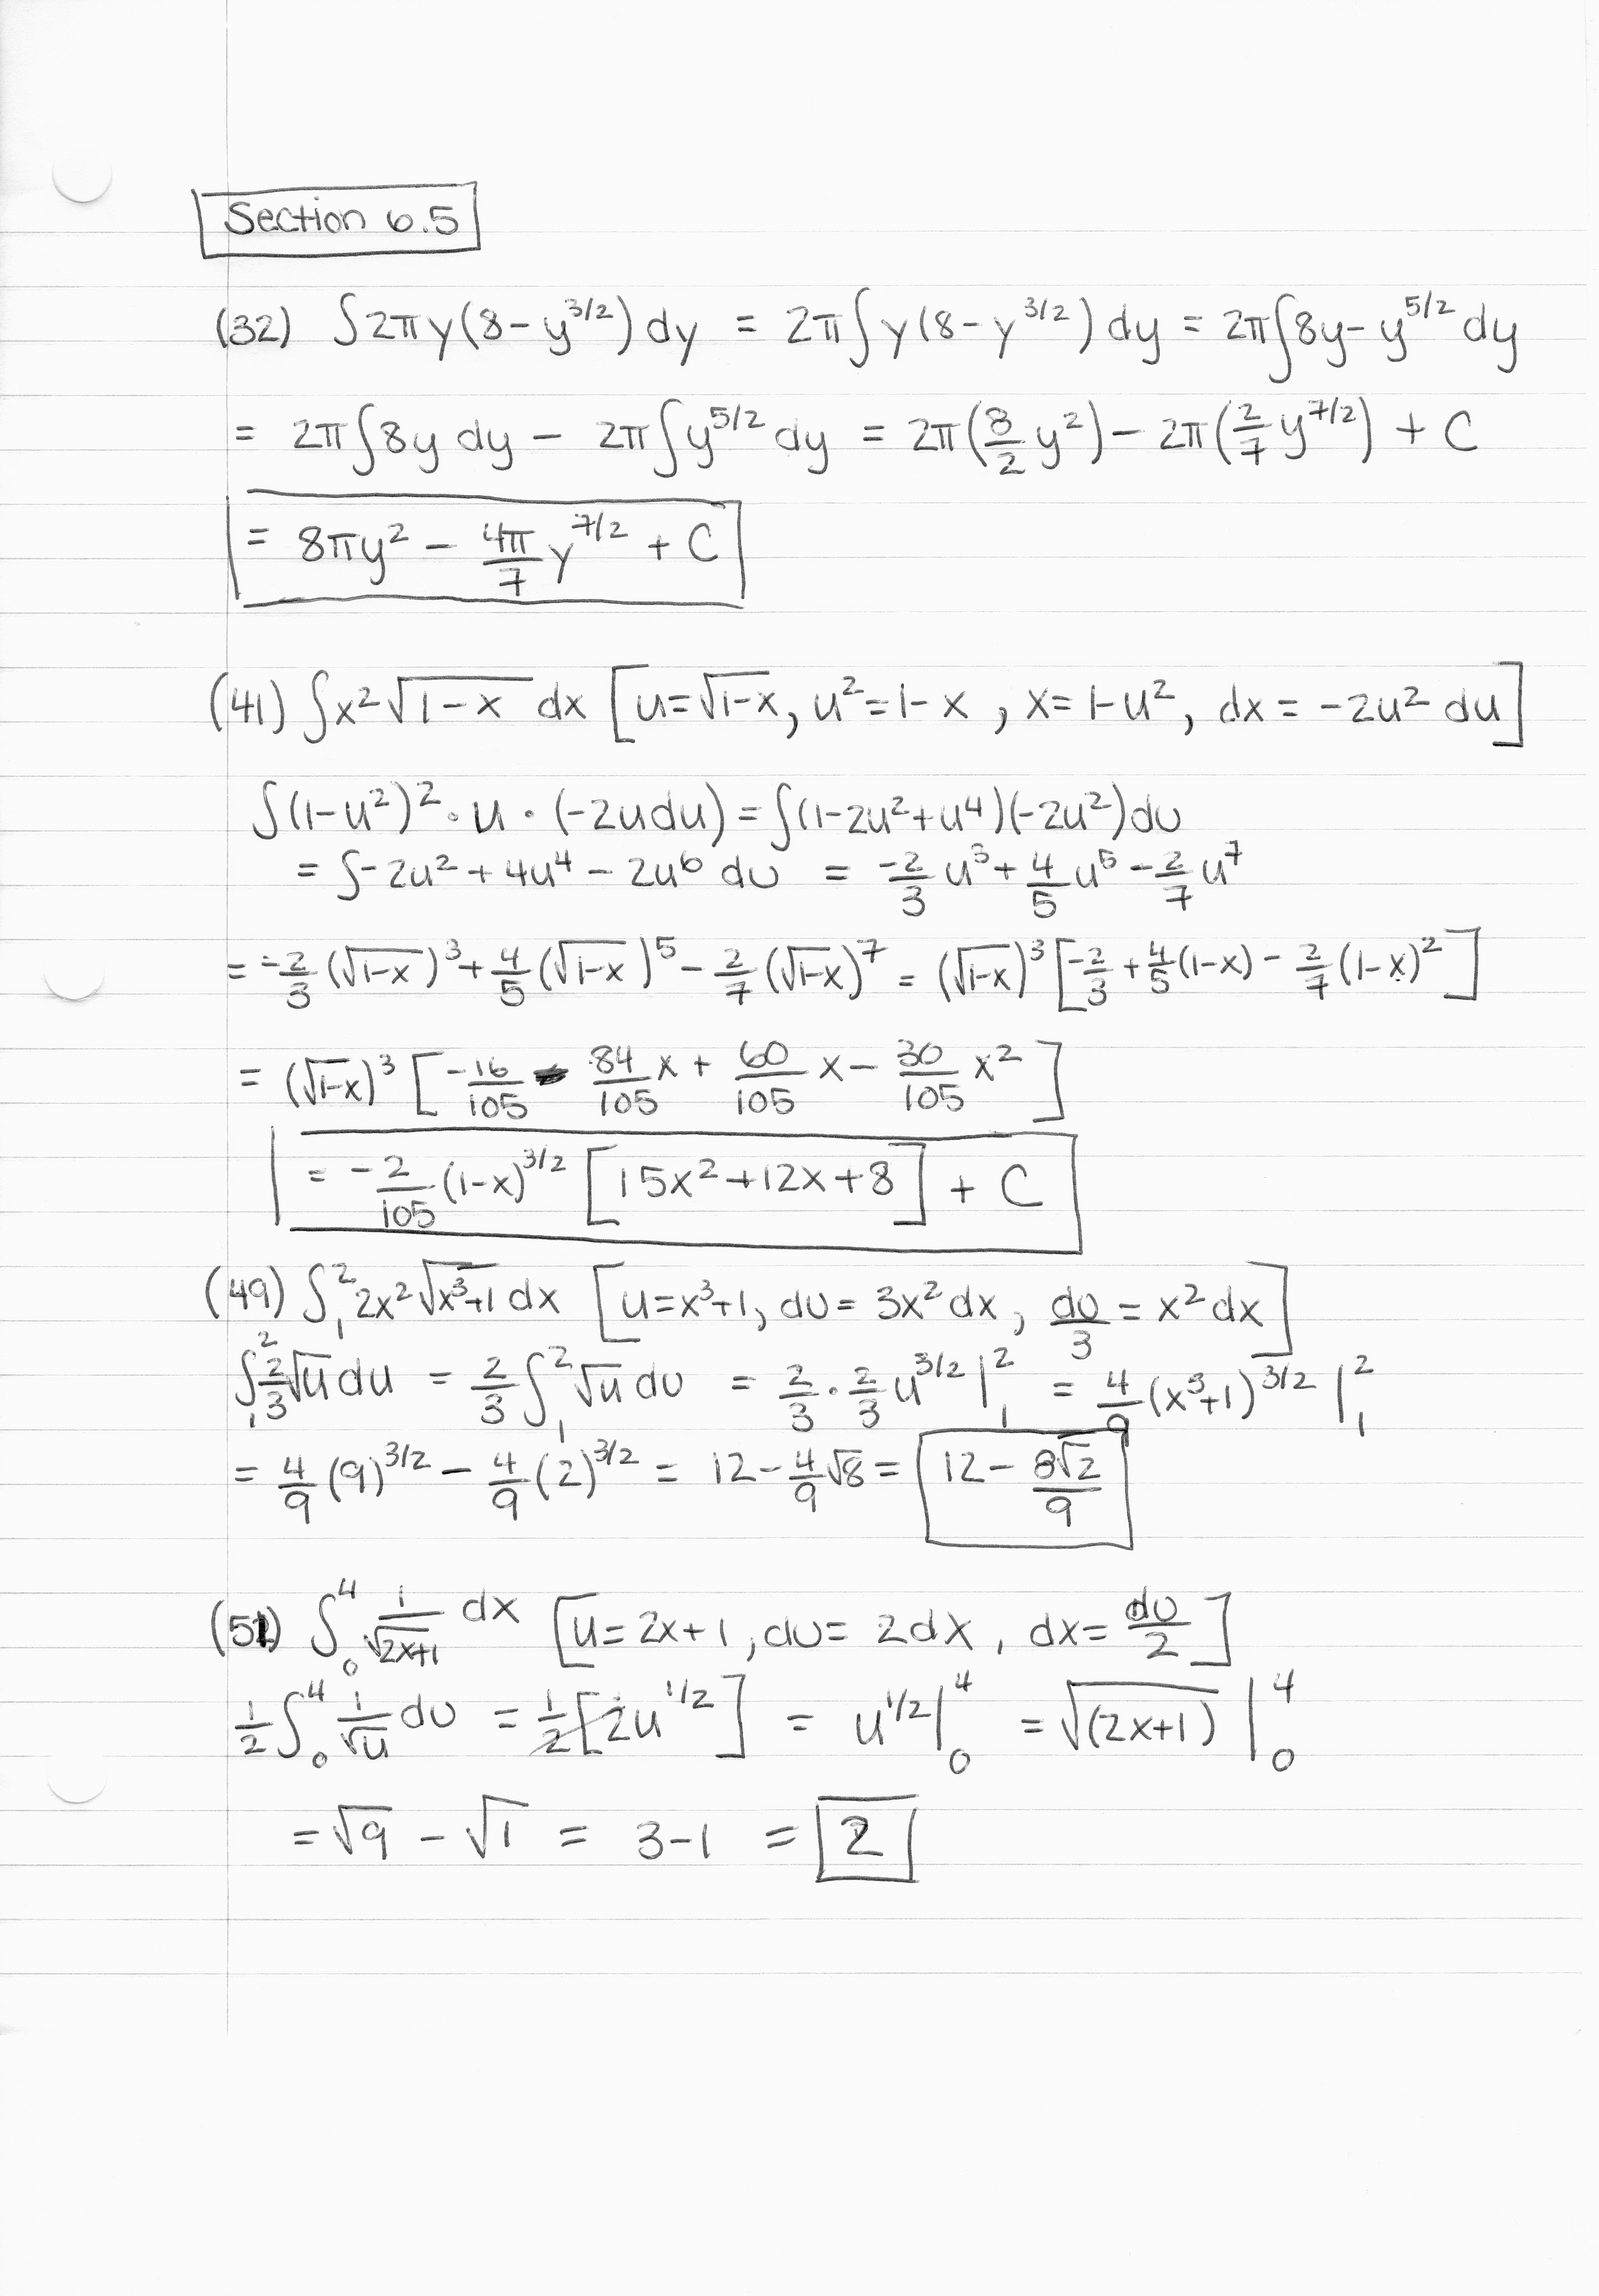 Section 6.5
(32) ∫2πy(8-y^{3/2})dy = 2π∫y(8-y^{3/2})dy = 2π∫8y-y^{5/2}dy
= 2π∫8y dy - 2π∫y^{5/2}dy = 2π(8/2 y²) - 2π(2/7 y^{7/2}) + C
= 8πy² - 4π/7 y^{7/2} + C
(41) ∫x²√(1-x) dx [u=√(1-x), u²=1-x, x=1-u², dx = -2u² du]
∫(1-u²)²·u·(-2udu) = ∫(1-2u²+u⁴)(-2u²)du
= ∫-2u²+4u⁴-2u⁶ du = -2/3 u³ + 4/5 u⁵ - 2/7 u⁷
= -2/3 (√(1-x))³ + 4/5 (√(1-x))⁵ - 2/7 (√(1-x))⁷ = (√(1-x))³ [-2/3 + 4/5 (1-x) - 2/7 (1-x)²]
= (√(1-x))³ [-16/105 - 84/105 x + 60/105 x - 30/105 x²]
= -2/105 (1-x)^{3/2} [15x²+12x+8] + C
(49) ∫₁² 2x²√(x³+1) dx [u=x³+1, du = 3x² dx, du/3 = x² dx]
∫₁² 2/3 √u du = 2/3 ∫₁² √u du = 2/3 · 2/3 u^{3/2} |₁² = 4/9 (x³+1)^{3/2} |₁²
= 4/9 (9)^{3/2} - 4/9 (2)^{3/2} = 12 - 4/9 √8 = 12 - 8√2/9
(51) ∫₀⁴ 1/√(2x+1) dx [u=2x+1, du = 2dx, dx = du/2]
1/2 ∫₀⁴ 1/√u du = 1/2 [2u^{1/2}] = u^{1/2} |₀⁴ = √(2x+1) |₀⁴
= √9 - √1 = 3-1 = 2